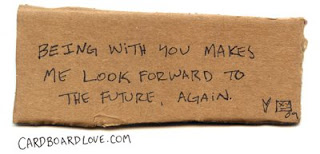 BEING WITH YOU MAKES
ME LOOK FORWARD TO
THE FUTURE, AGAIN.
CARDBOARDLOVE.COM